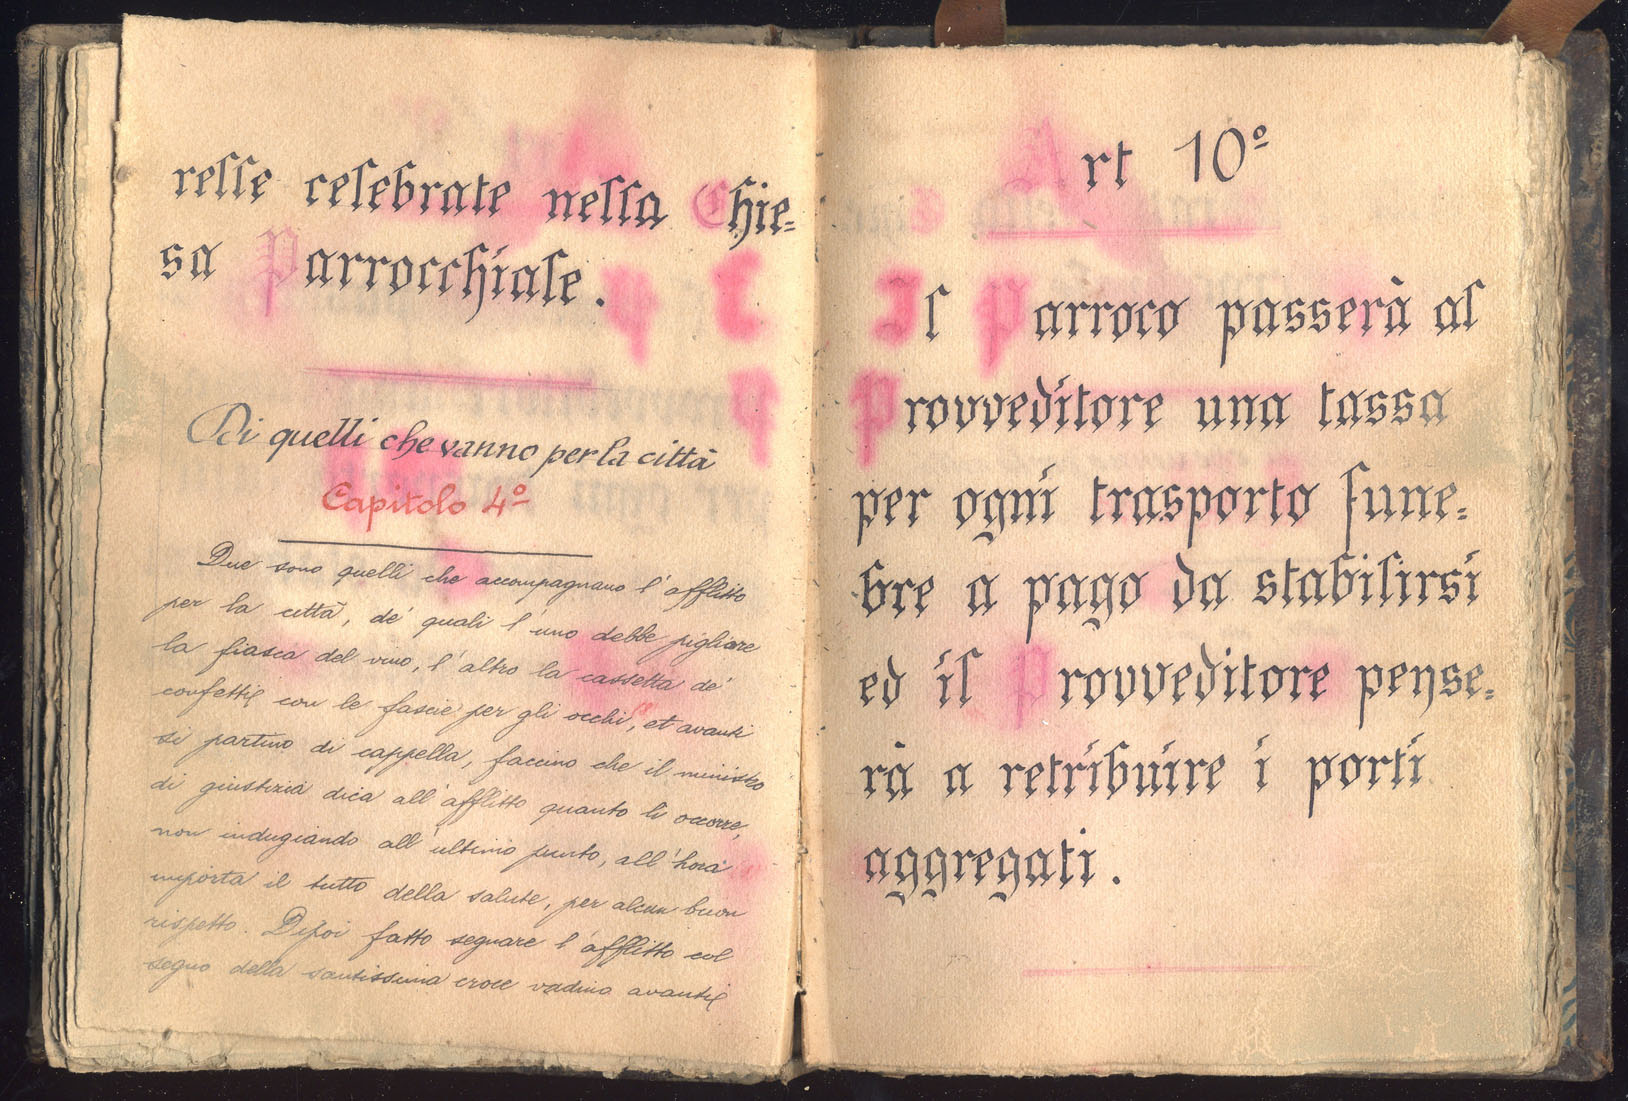 relle celebrate nella Chie=
sa Parrocchiale.
Di quelli che vanno per la città
Capitolo 4º
Due sono quelli che accompagnano l'afflitto
per la città, de' quali l'uno debbe pigliare
la fiasca del vino, l'altro la cassetta de'
confetti con le fascie per gli occhi, et avanti
si partino di cappella, faccino che il ministro
di giustizia dica all'afflitto quanto li occorre,
non indugiando all'ultimo punto, all'hora
importa il tutto della salute, per alcun buon
rispetto. Dipoi fatto segnare l'afflitto col
segno della santissima croce vadino avanti
Art 10º
Il Parroco passerà al
Provveditore una tassa
per ogni trasporto fune=
bre a pago da stabilirsi
ed il Provveditore pense=
rà a retribuire i porti
aggregati.